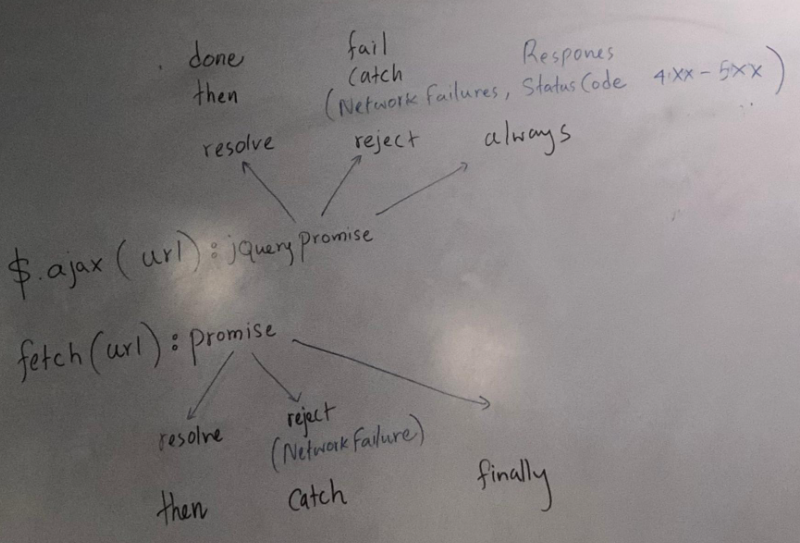 done fail Respones
then catch
(Network Failures, Status Code 4xx - 5xx)
resolve reject always
$.ajax(url) : jquery promise
fetch(url) : promise
resolve reject
(Network Failure)
then catch finally